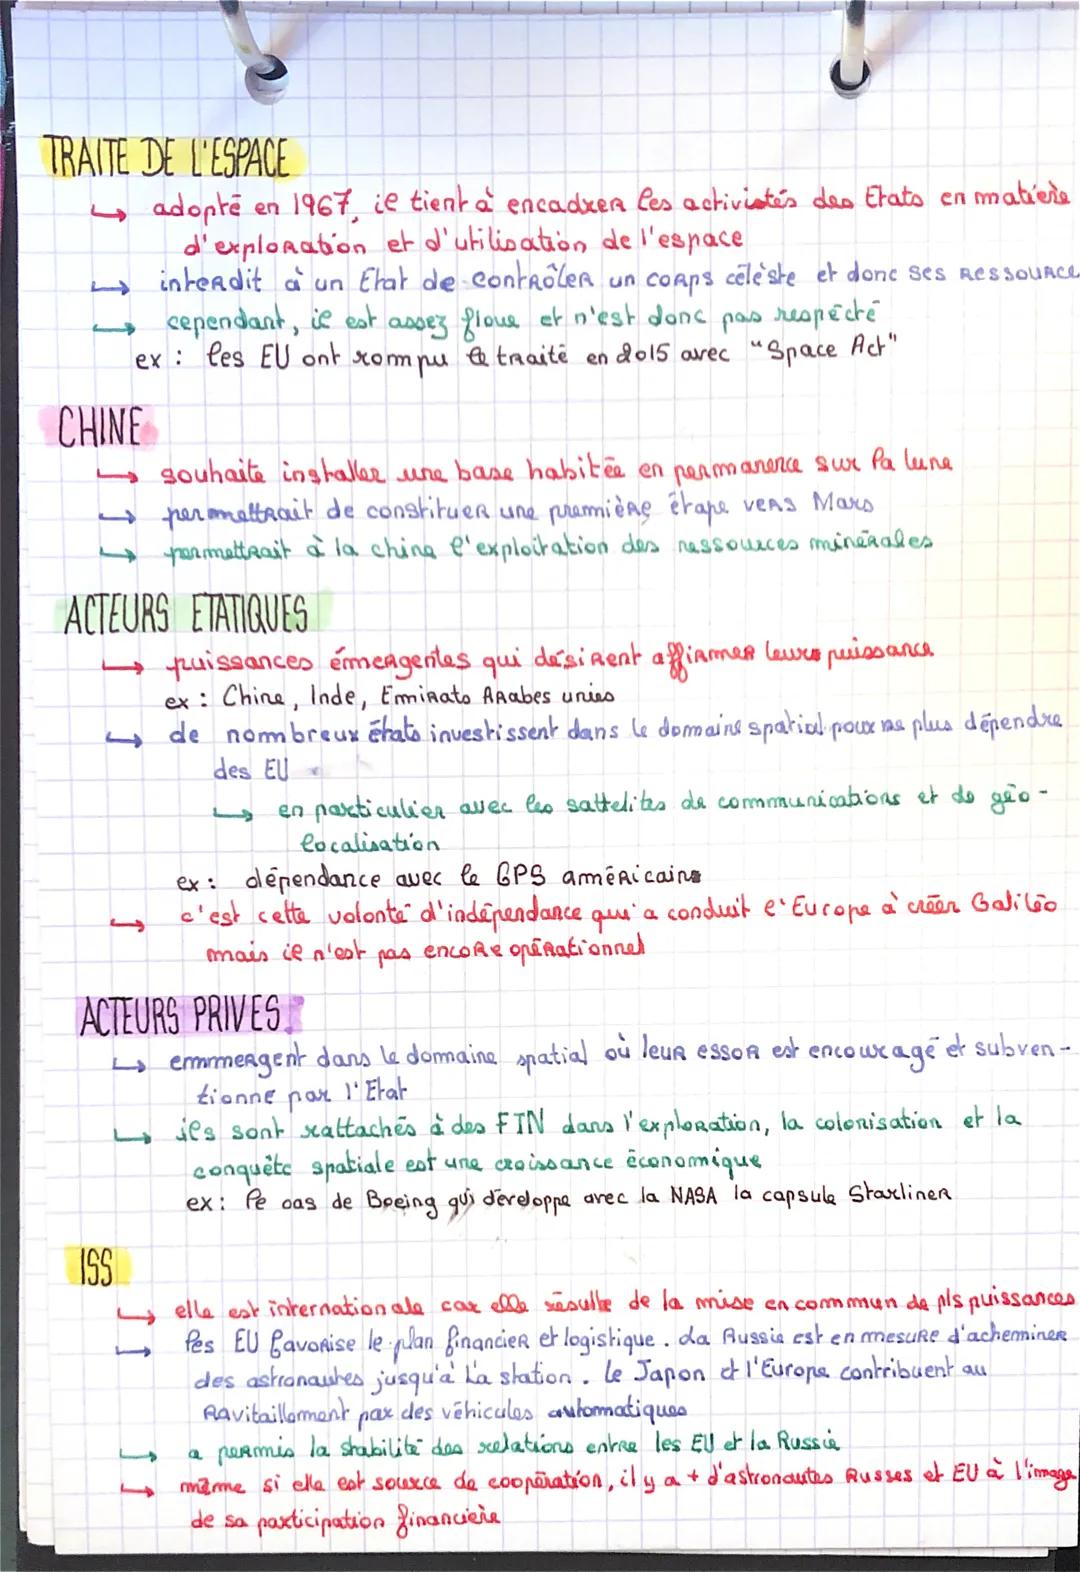 TRAITE DE L'ESPACE
↳ adopté en 1967, il tient à encadrer les activistés des Etats en matière
d'exploration et d'utilisation de l'espace
↳ interdit à un Etat de contrôler un corps céleste et donc ses ressource
↳ cependant, il est assez floue et n'est donc pas respécté
ex : les EU ont rompu le traité en 2015 avec "Space Act"
CHINE
↳ souhaite installer une base habitée en permanence sur la lune
↳ permettrait de constituer une première étape vers Mars
↳ permettrait à la chine l'exploitation des ressources minérales
ACTEURS ETATIQUES
↳ puissances émergentes qui désirent affirmer leurs puissance
ex : Chine, Inde, Emirats Arabes unies
↳ de nombreux états investissent dans le domaine spatial pour ne plus dépendre
des EU
↳ en particulier avec les sattelites de communications et de géo-
localisation
ex : dépendance avec le GPS américains
↳ c'est cette volonté d'indépendance qui a conduit l'Europe à créer Galiléo
mais il n'est pas encore opérationnel
ACTEURS PRIVES
↳ emmergent dans le domaine spatial où leur essor est encouragé et subven-
tionne par l'Etat
↳ ils sont rattachés à des FTN dans l'exploration, la colonisation et la
conquête spatiale est une croissance économique
ex : le cas de Boeing qui développe avec la NASA la capsule Starliner
ISS
↳ elle est internationale car elle résulte de la mise en commun de pls puissances
↳ les EU favorise le plan financier et logistique. La Russie est en mesure d'acheminer
des astronautes jusqu'à la station. Le Japon et l'Europe contribuent au
ravitaillement par des véhicules automatiques
↳ a permis la stabilité des relations entre les EU et la Russie
↳ même si elle est source de coopération, il y a + d'astronautes Russes et EU à l'image
de sa participation financière